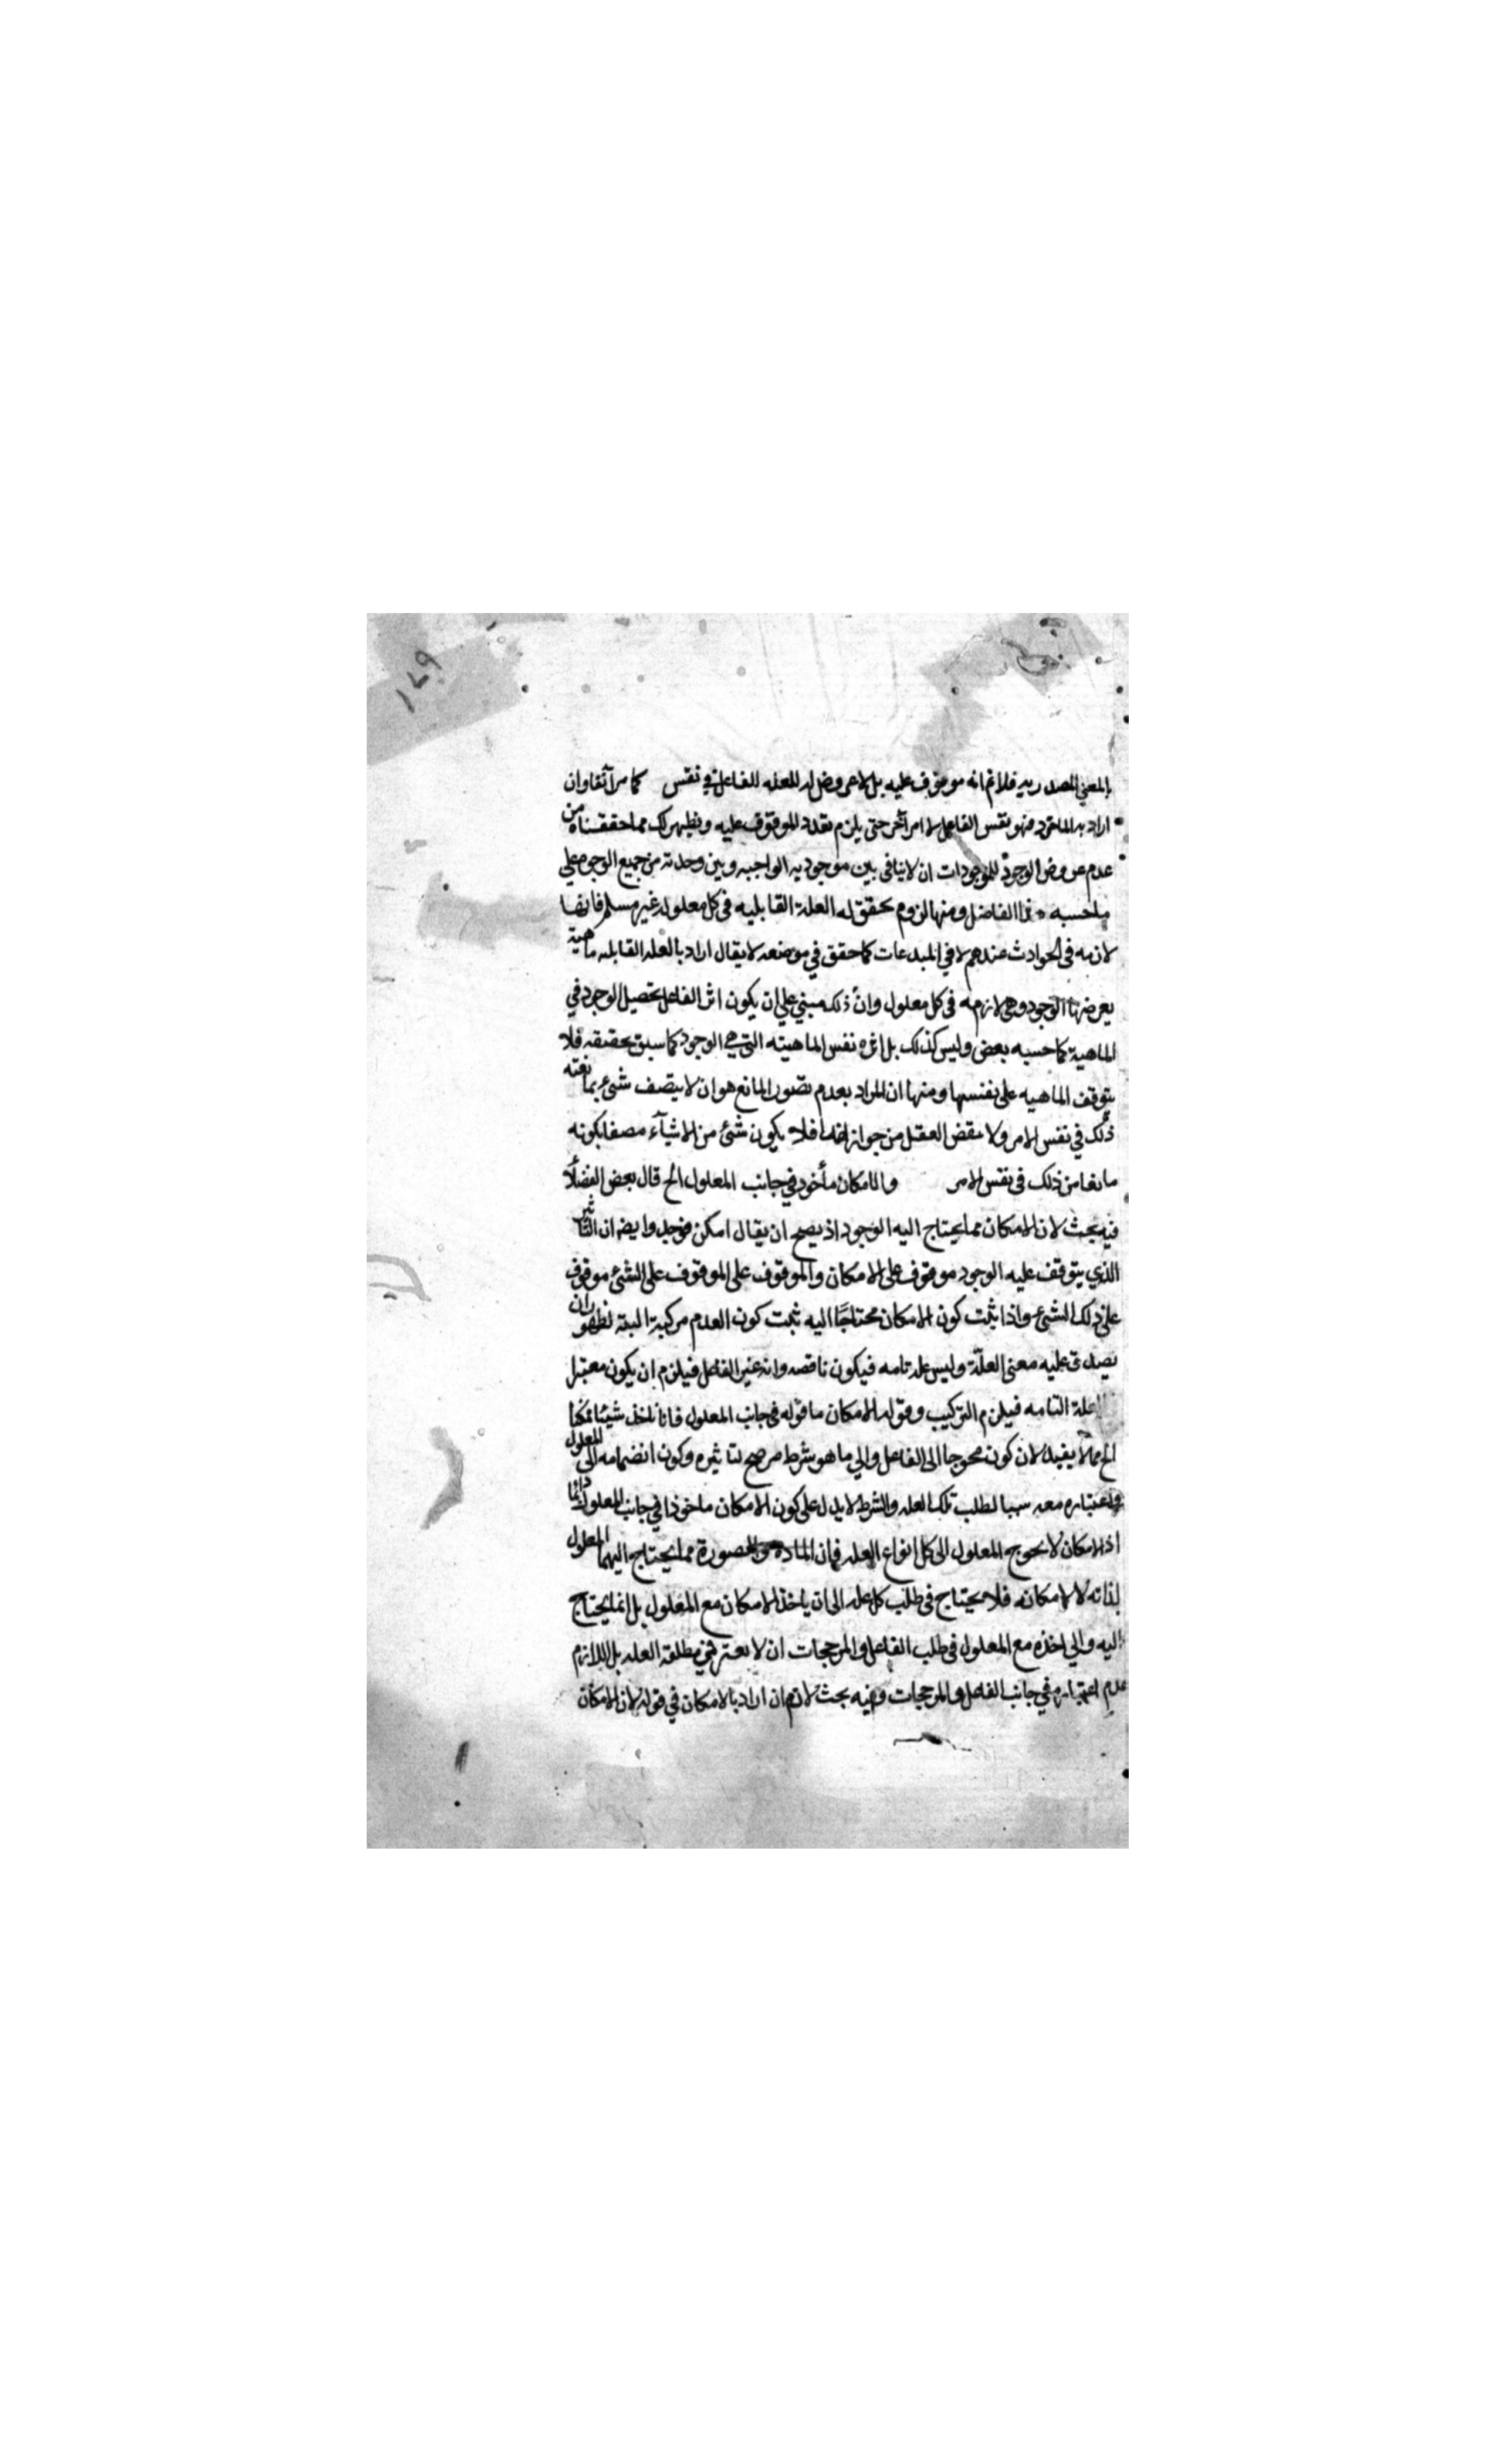 ١٤٩
بالمعني المصدريه فلا نم انه موقوف عليه بل لاعروض له للعله الفاعل في نفس كما مر آنفا وان
اراد به الماخوذ منه فهو نفس الفاعل لا امر آخر حتى يلزم تعدد الموقوف عليه وبظهر لك مما حققناه من
عدم عروض الوجود للموجودات ان لا ينافى بين موجوديه الواجبه وبين وحدته من جميع الوجوه علي
ما حسبه هذا الفاضل ومنها لزوم تحقق له العلة القابليه فى كل معلول غير مسلم فانها
لازمه فى الحوادث عندهم لا في المبدعات كما حقق في موضعه لا يقال اراد بالعله القابله ماهية
يعرضها الوجود وهى لازمه فى كل معلول وان ذلك مبني علي ان يكون اثر الفاعل تحصيل الوجود في
الماهية كما حسبه بعض وليس كذلك بل اثره نفس الماهيته التي هي الوجود كما سبق تحقيقه فلا
يتوقف الماهيه على نفسها ومنها ان المراد بعدم تصور المانع هو ان لا يتصف شئ بمانعته
ذلك في نفس الامر ولا ينقض العقل من جواز فلا يكون شئ من الاشيآء متصفا بكونه
مانعا من ذلك فى نفس الامر والامكان مأخوذ في جانب المعلول الخ قال بعض الفضلا
فيه بحث لان الامكان مما يحتاج اليه الوجود اذ يصح ان يقال امكن فوجد وايضا ان التاثير
الذي يتوقف عليه الوجود موقوف على الامكان والموقوف على الموقوف على الشئ موقوف
على ذلك الشئ واذا ثبت كون الامكان محتاجًا اليه ثبت كون العدم مركبة البته لظهور ان
يصدق عليه معنى العلّة وليس عله تامه فيكون ناقصه وانه غير الفاعل فيلزم ان يكون معتبرا
العلة التامه فيلزم التركيب وقوله الامكان ماخوذ فى جانب المعلول فانا ناخذ شيئا ممكنا
الخ مما لا يفيد لان كون محوجا الى الفاعل والي ما هو شرط مرجح لتاثيره وكون انضمامه الى المعلول
واعتباره معه سببا لطلب تلك العله والشرط لا يدل على كون الامكان ماخوذا في جانب المعلول دائما
اذ الامكان لا يحوج المعلول الى كل انواع العله فان الماده والصورة مما يحتاج اليهما المعلول
لذاته لا لامكانه فلا يحتاج فى طلب كل عله الى ان ياخذ الامكان مع المعلول بل انما يحتاج
اليه والي اخذه مع المعلول فى طلب الفاعل والمرجحات ان لا يعتبر في مطلقه العله بل اللازم
عدم اعتباره في جانب الفاعل والمرجحات وفيه بحث لانه ان اراد بالامكان في قوله لان الامكان